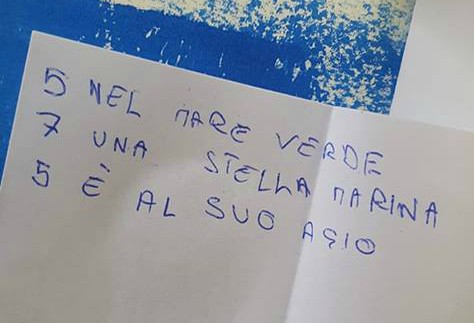 5 NEL MARE VERDE
7 UNA STELLA MARINA
5 È AL SUO AGIO